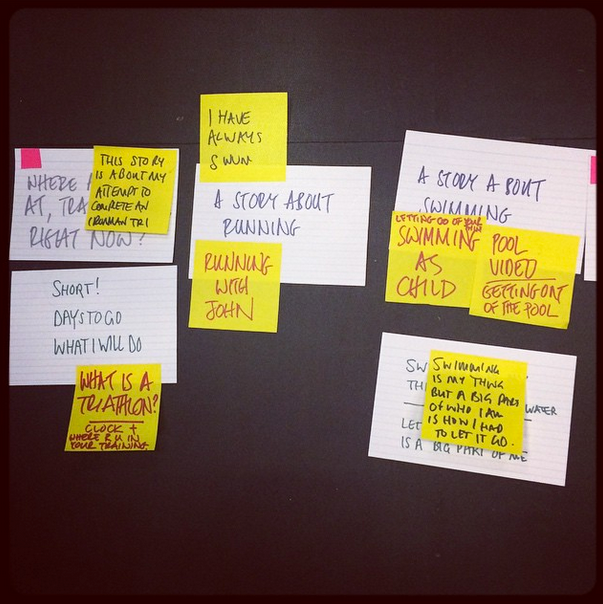 WHERE A
AT, TRA
RIGHT NOW?
THIS STORY
IS ABOUT MY
ATTEMPT TO
COMPLETE AN
IRONMAN TRI
SHORT!
DAYS TO GO
WHAT I WILL DO
WHAT IS A
TRIATHLON?
CLOCK +
WHERE R U IN
YOUR TRAINING
I HAVE
ALWAYS
SWUM
A STORY ABOUT
RUNNING
RUNNING
WITH
JOHN
A STORY ABOUT
SWIMMING
LETTING GO OF YOUR
SWIMMING
AS
CHILD
POOL
VIDEO
GETTING OUT
OF THE POOL
SW
TH
WATER
LET
IS A BIG PART OF ME
SWIMMING
IS MY THING
BUT A BIG PART
OF WHO I AM
IS HOW I HAD
TO LET IT GO.